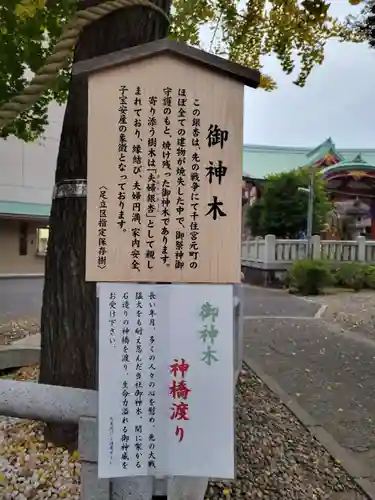 御神木
この銀杏は、先の戦争にて千住宮元町の
ほぼ全ての建物が焼失した中で、御祭神御
守護のもと、焼け残った御神木であります。
寄り添う樹木は「夫婦銀杏」として親し
まれており、縁結び、夫婦円満、家内安全、
子宝安産の象徴となっております。
〈足立区指定保存樹〉
御神木
神橋渡り
長い年月、多くの人々の心を慰め、先の大戦
猛火にも耐えている当社御神木。間に
石造りの神橋を渡り、生命力溢れる御神威を
お受け下さい。